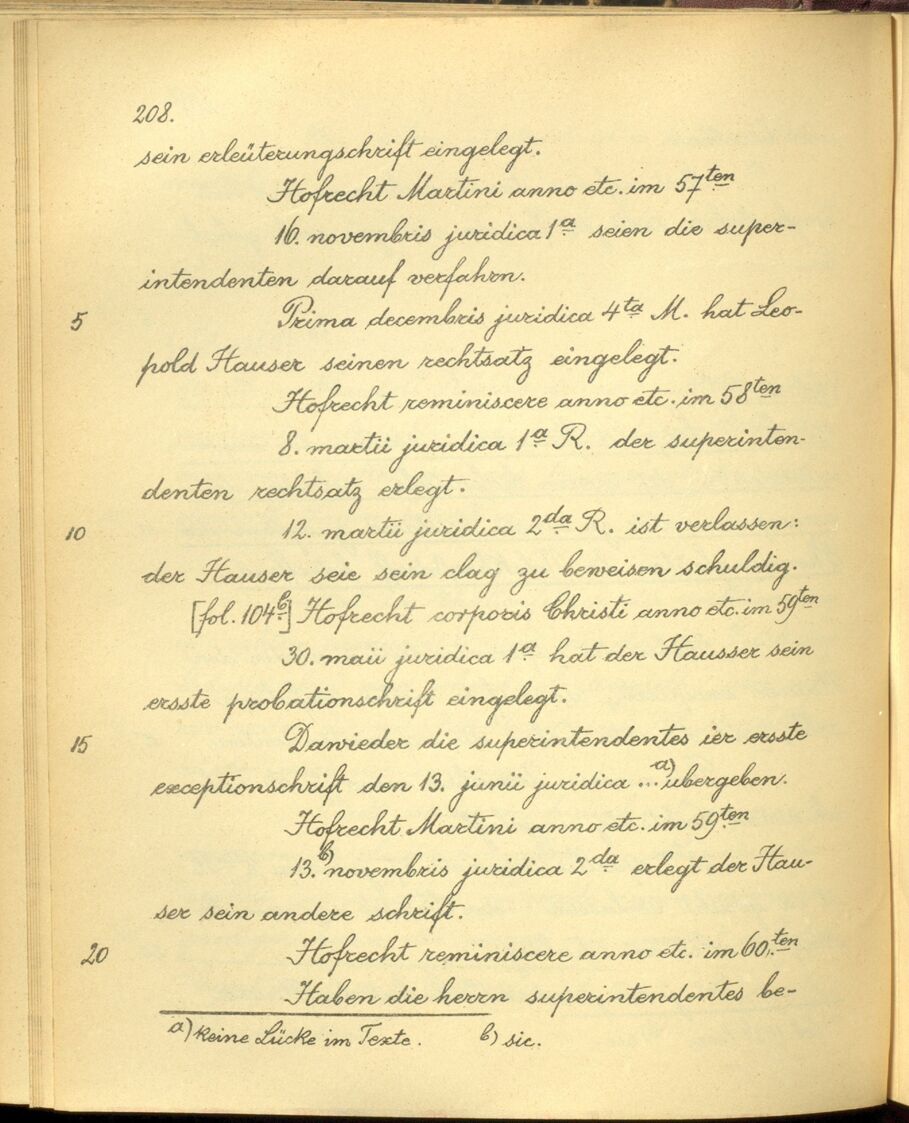 208.
sein erleüterungschrift eingelegt.
Hofrecht Martini anno etc. im 57ten
16. novembris juridica 1a seien die super-
intendenten darauf verfahrn.
5 Prima decembris juridica 4ta M. hat Leo-
pold Hauser seinen rechtsatz eingelegt.
Hofrecht reminiscere anno etc. im 58ten
8. martii juridica 1a R. der superinten-
denten rechtsatz erlegt.
10 12. martii juridica 2da R. ist verlassen:
der Hauser seie sein clag zu beweisen schuldig.
[fol. 104b] Hofrecht corporis Christi anno etc. im 59ten
30. maii juridica 1a hat der Hausser sein
ersste probationschrift eingelegt.
15 Dawieder die superintendentes ier ersste
exceptionschrift den 13. junii juridica ...a) ubergeben.
Hofrecht Martini anno etc. im 59ten
13.b) novembris juridica 2da erlegt der Hau-
ser sein andere schrift.
20 Hofrecht reminiscere anno etc. im 60.ten
Haben die herrn superintendentes be-
a) keine Lücke im Texte. b) sic.